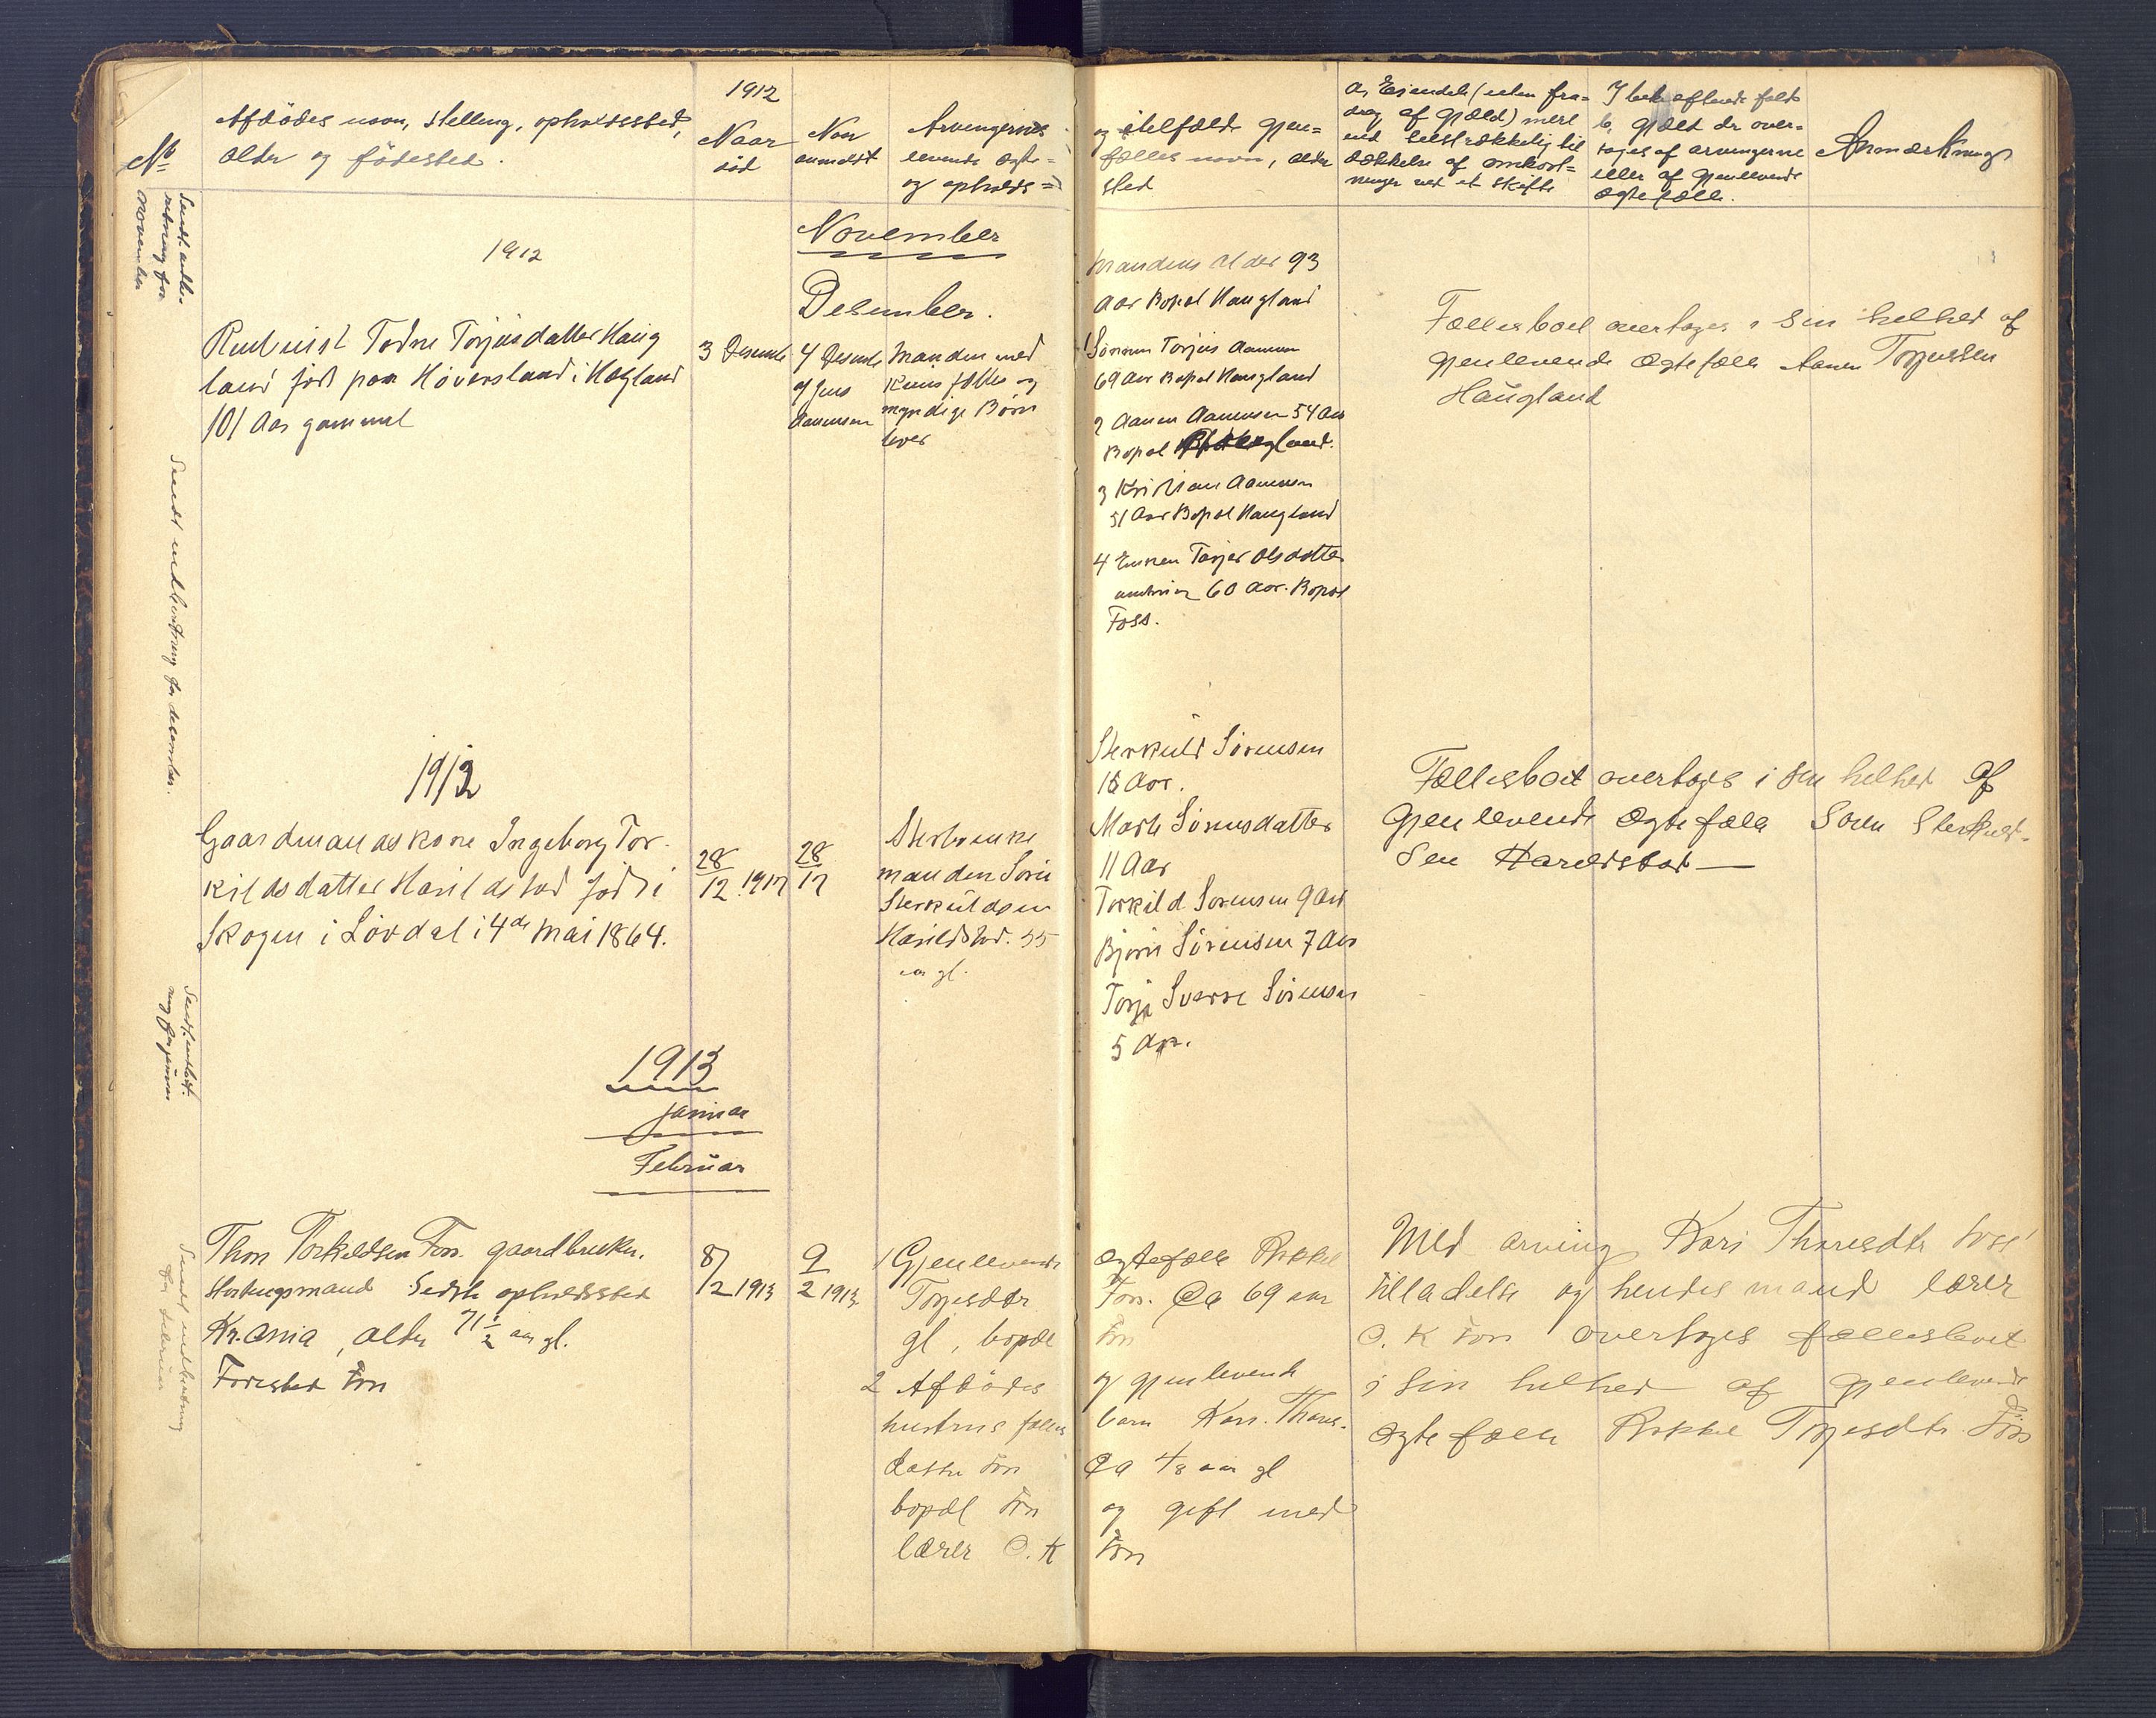 1912
No
Afdödes navn, stelling, opholdssted,
alder og födested.
Naar
död
Naar
anmeldt
Arvingernes
levende ægte=
og opholds=
og tilfælde gjen=
fælles navn, alder
sted
a, Eiendele (uden fra=
drag af gjæld) mere
end tilstrækkelig til
dækkelse af omkost=
ninger ved et skifte
I bekræftende fald
b, gjæld der over=
tages af arvingerne
eller af gjenlevende
ægtefælle.
Anmærkninger
Sendt indbe-
retning for
November
1912
November
Desember.
Todne Torjusdatter Haug
land født paa Høversland i Hægland
101 Aar gammel
3 Desembe
4 Desembe
af Jens
Aanensen
Manden med
fælles og
myndige Børn
lever
Mandens Alder 93
Aar Bopæl Haugland
1 Sønnen Torjus Aanensen
69 Aar Bopæl Haugland
2 Aanen Aanensen 54 Aar
Bopæl Haugland.
3 Kristian Aanensen
51 Aar Bopæl Haugland
4 Enken Torjer Olsdatter
60 Aar. Bopæl
Foss.
Fællesboet overtages i sin helhed af
gjenlevende ægtefælle Aanen Torjussen
Haugland
Sendt indberetning for desember.
1912
Gaardmandskone Ingeborg Tor-
kildsdatter Harildstad født i
Skogen i Lövdal i 4de Mai 1864.
28/12 1912
28/12
Sterbenke
manden Sören
Sterkuldsen
Harildstad. 55
aar gl.
Sterkuld Sörensen
18 Aar.
Marte Sörensdatter
11 Aar
Torkild Sorensen 9 Aar
Björn Sörensen 7 Aar
Torje Sverre Sörensen
5 Aar.
Fællesboet overtages i sin helhed af
Gjenlevende Ægtefælle Sören Sterkuld-
sen Hareldstad —
Sendt indberet-
ning for januar
1913
januar
Februar
Sendt indberetning
for februar
Thore Torkeldsen Foss. gaardbruker.
Stortingsmand Sidste opholdssted
Kr.ania, alder 71 1/2 aar gl.
Fødested Foss
8/2 1913
9/2 1913
1 Gjenlevende ægtefælle Rekkel
Torjesdtr Foss. Ca 69 aar
gl, bopæl Foss
2 Afdödes og gjenlevende
hustrus fælles barn Kari Thores-
datter Foss Ca 48 aar gl
bopæl Foss og gift med
lærer O. K Foss
Med arving Kari Thoresdtr Foss'
tilladelse og hendes mand lærer
O. K Foss overtages fællesboet
i sin helhed af gjenlevende
ægtefælle Rekkel Torjesdtr. Foss